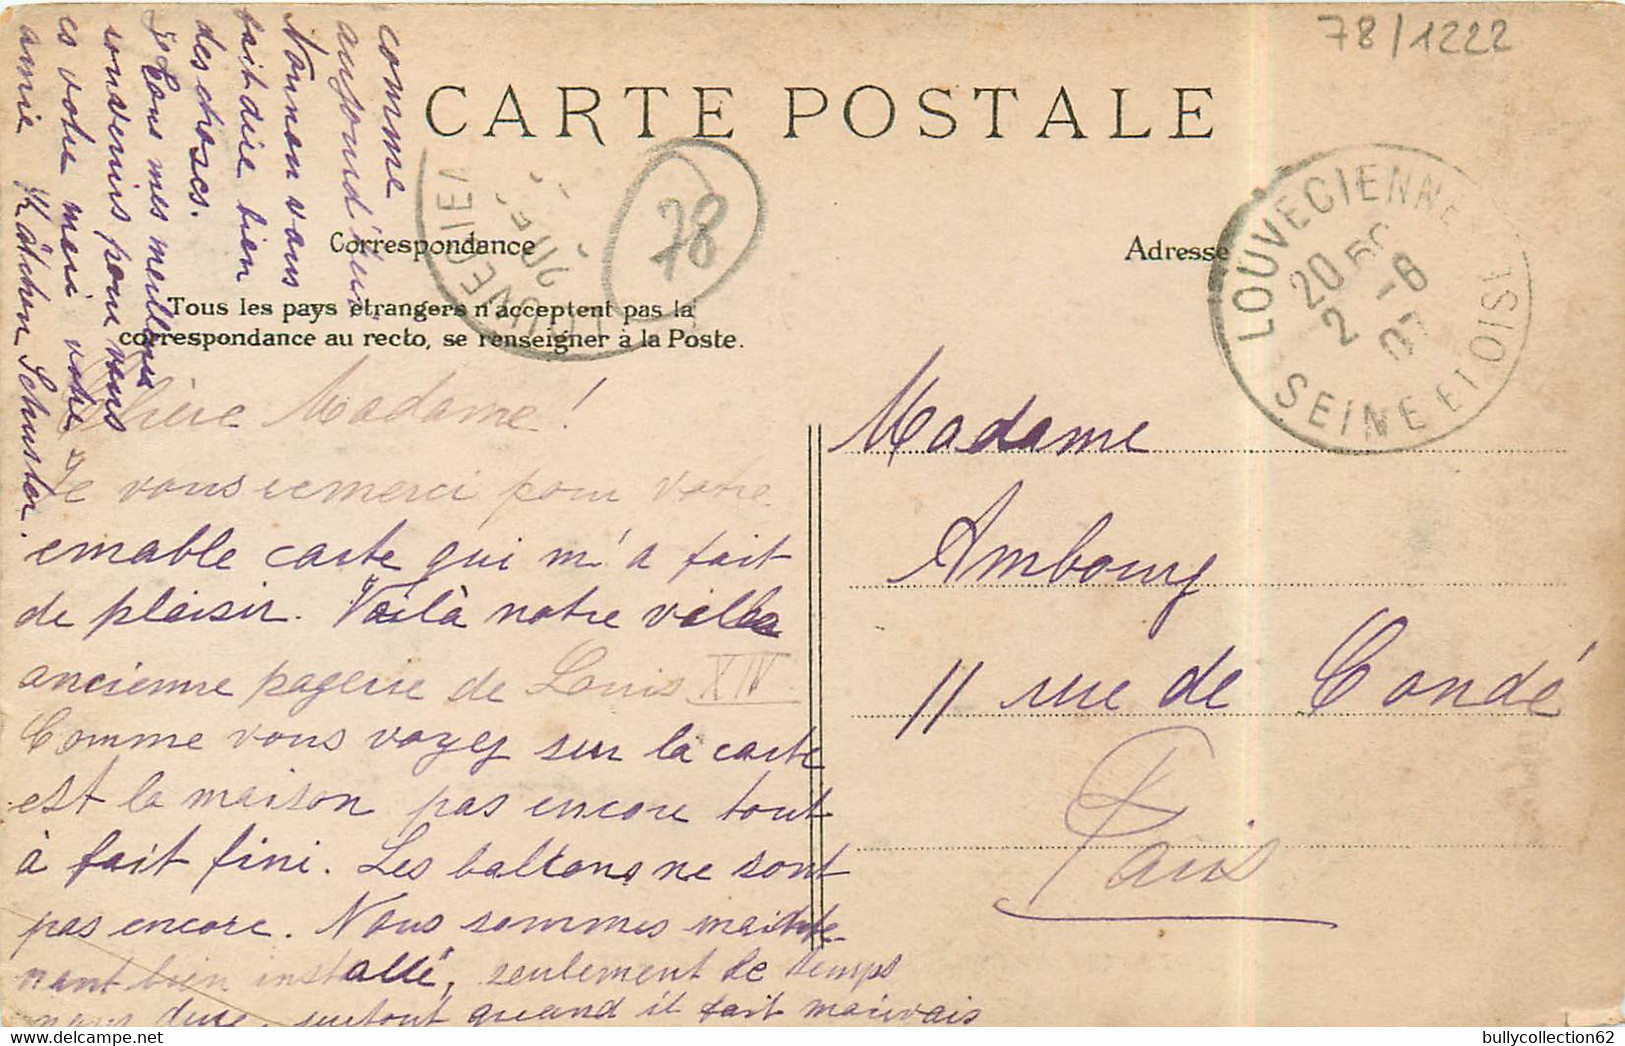 78/1222
CARTE POSTALE
78
Correspondance
Adresse
Tous les pays étrangers n'acceptent pas la
correspondance au recto, se renseigner à la Poste.
LOUVECIENNES
SEINE ET OISE
20
2 -6
07
Chère Madame!
Je vous remerci pour votre
emable carte qui m'a fait
de plaisir. Voilà notre villa
ancienne pagerie de Louis XIV.
Comme vous voyez sur la carte
est la maison pas encore tout
à fait fini. Les baltons ne sont
pas encore. Nous sommes mainte-
nant bien installé, seulement le temps
nous dure, surtout quand il fait mauvais
comme
aujourd'hui.
Nonnon vous
fait dire bien
des choses.
Tous mes meilleurs
souvenirs pour vous
es votre merci votre
amie Kätchen Schuster.
Madame
Ambourg
11 rue de Condé
Paris
bullycollection62